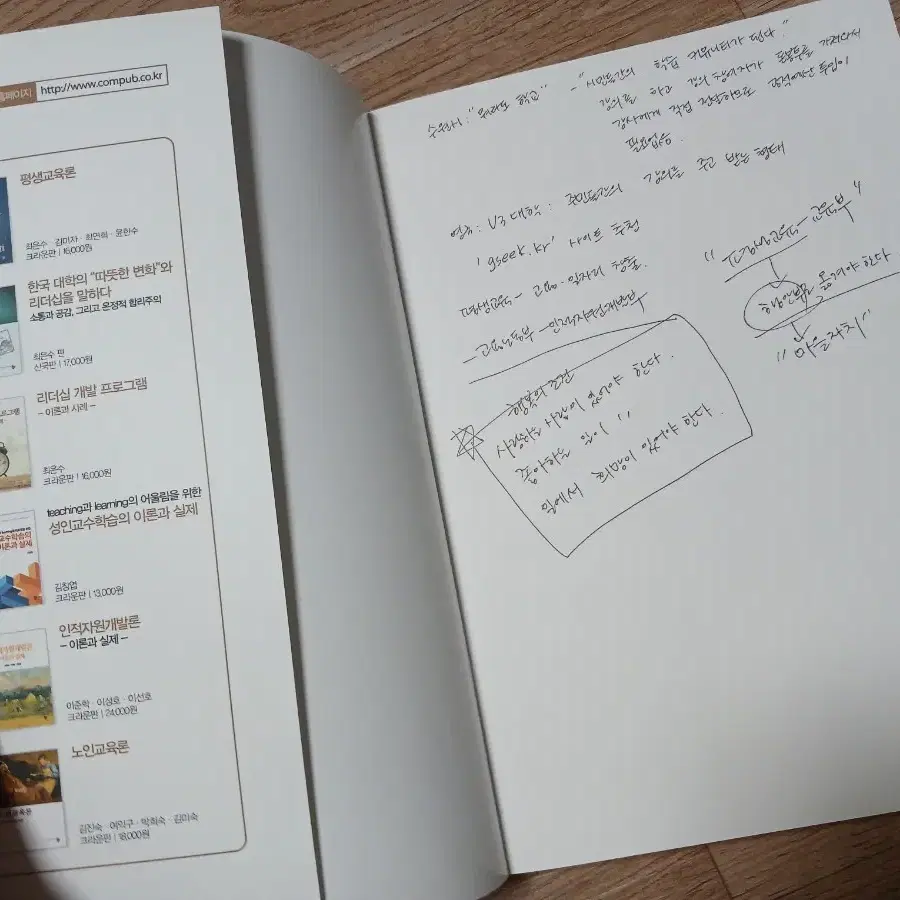 홈페이지 http://www.compub.co.kr
평생교육론
최은수 · 김미자 · 최연희 · 윤한수
크라운판 | 16,000원
한국 대학의 "따뜻한 변화"와
리더십을 말하다
소통과 공감, 그리고 온정적 합리주의
최은수 편
신국판 | 17,000원
리더십 개발 프로그램
– 이론과 사례 –
최은수
크라운판 | 16,000원
teaching과 learning의 어울림을 위한
성인교수학습의 이론과 실제
김창엽
크라운판 | 13,000원
인적자원개발론
– 이론과 실제 –
이준학 · 이성호 · 이선호
크라운판 | 24,000원
노인교육론
김진숙 · 여익구 · 박희숙 · 김미숙
크라운판 | 18,000원
수원시: "뭐라도 학교" - "시민들간의 학습 커뮤니티가 된다."
강의를 하고 강의 참여자가 돈봉투를 가져와서
강사에게 직접 전달하므로 공적예산 투입이
필요없음.
영국: U3대학: 주민들간의 강의를 주고 받는 형태
'gseek.kr' 사이트 추천
평생교육 - 고용·일자리 창출.
- 고용노동부 - 인적자원개발부
행복의 조건
사랑하는 사람이 있어야 한다.
좋아하는 일이 〃
일에서 희망이 있어야 한다.
"평생교육 - 교육부"
행안부로 옮겨야 한다
"마을자치"